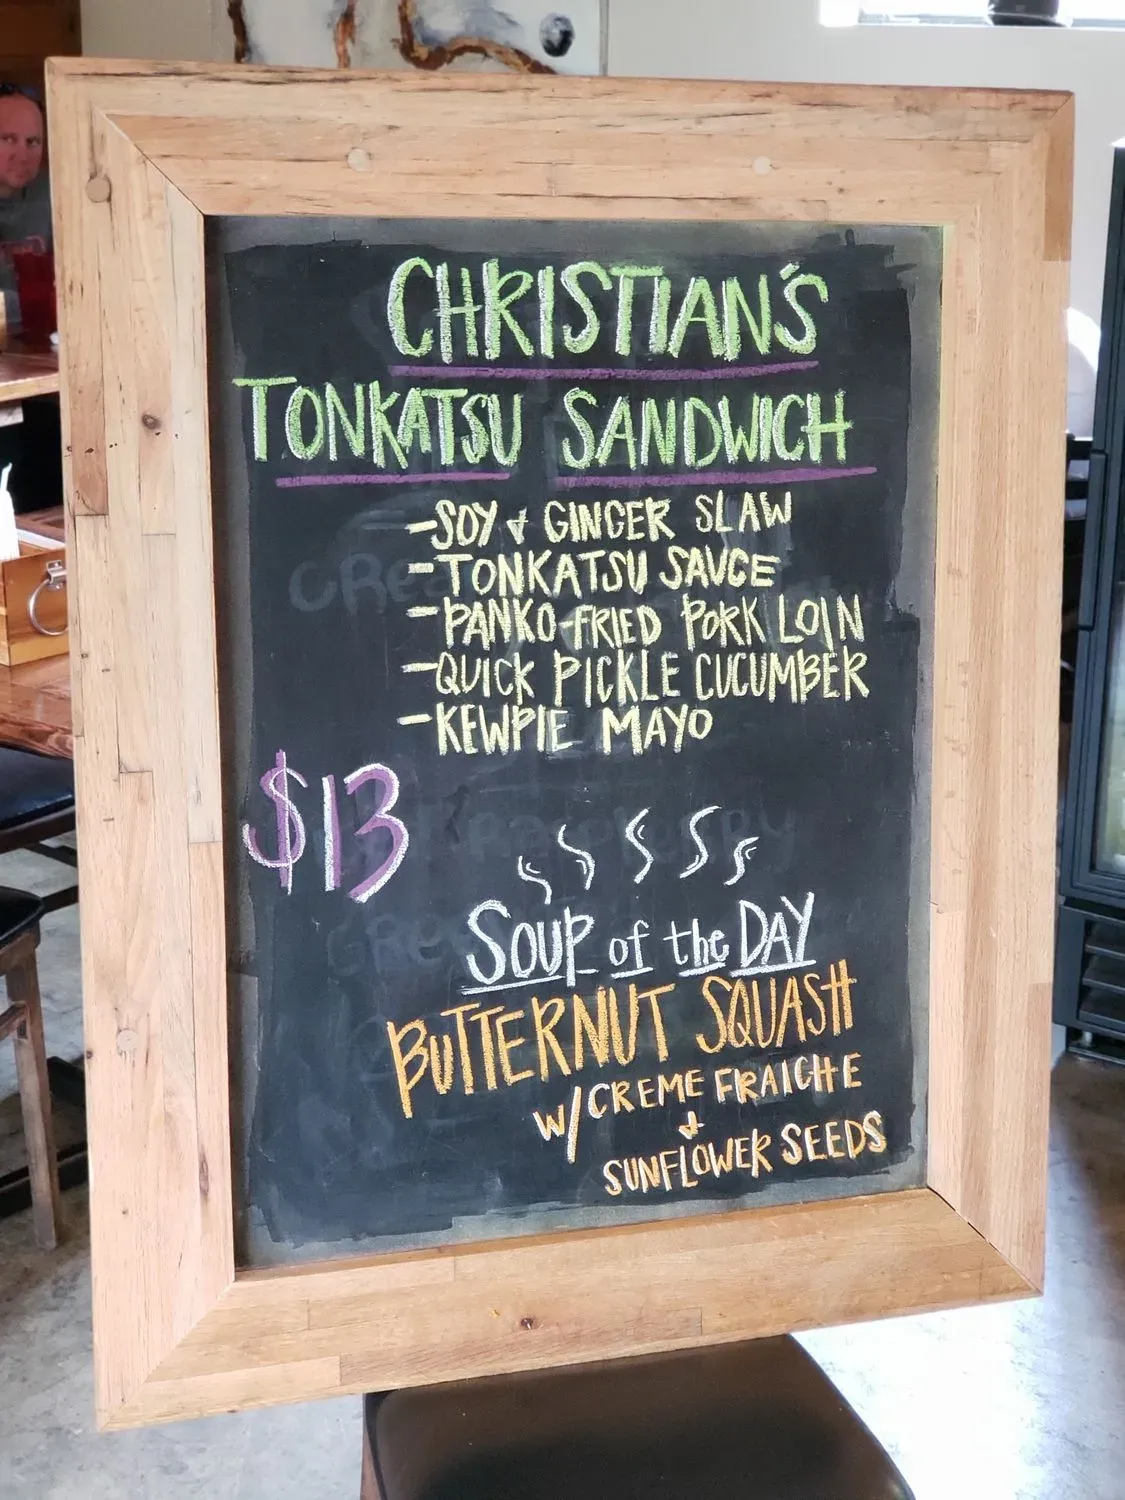 CHRISTIAN'S
TONKATSU SANDWICH
-SOY & GINGER SLAW
-TONKATSU SAUCE
-PANKO-FRIED PORK LOIN
-QUICK PICKLE CUCUMBER
-KEWPIE MAYO
$13
SOUP of the DAY
BUTTERNUT SQUASH
W/CREME FRAICHE
&
SUNFLOWER SEEDS